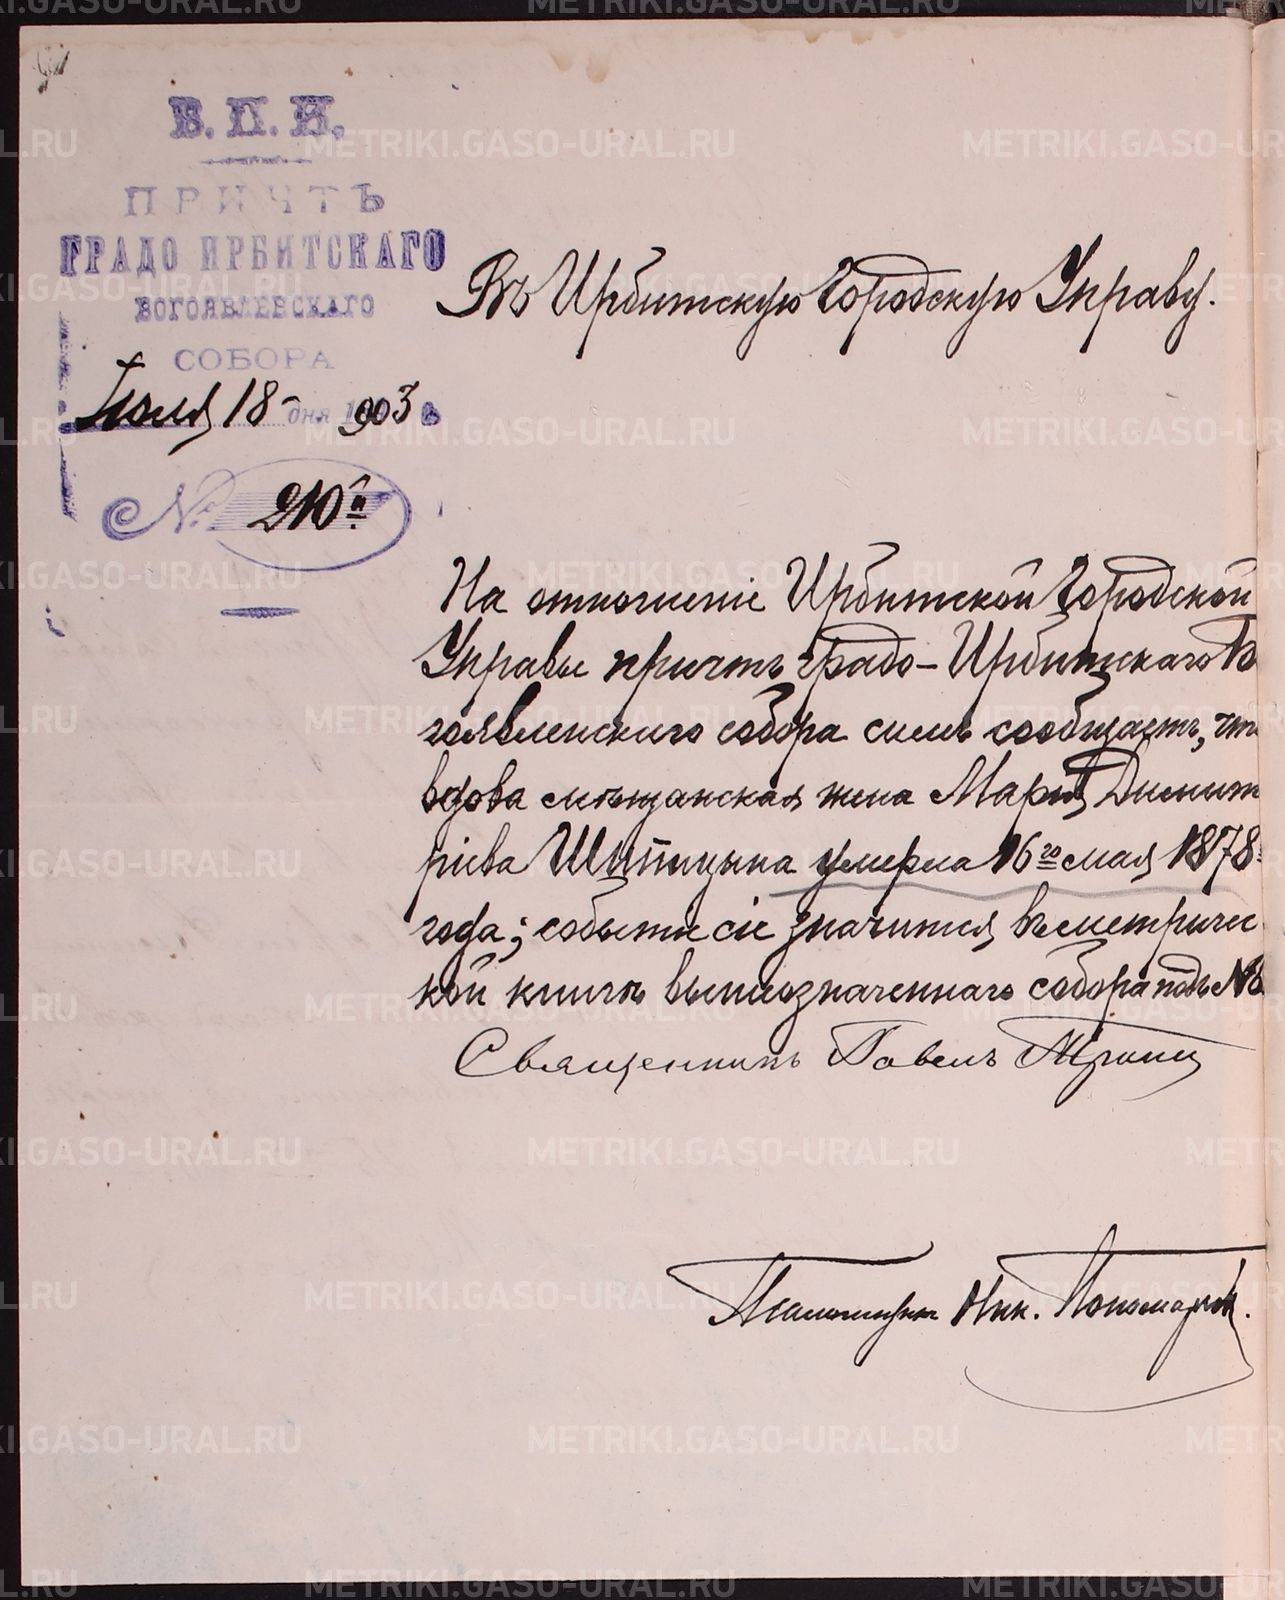 В. П. И.
ПРИЧТЪ
ГРАДО ИРБИТСКАГО
БОГОЯВЛЕНСКАГО
СОБОРА
Іюля 18 дня 1903 г.
№ 210
Въ Ирбитскую Городскую Управу.
На отношеніе Ирбитской Городской
Управы причтъ градо-Ирбитскаго Бо
гоявленскаго собора симъ сообщаетъ, что
вдова мѣщанская жена Марія Димит
ріева Шипицына умерла 16го мая 1878
года; событіе сіе значится въ метричес
кой книгѣ вышеозначеннаго собора подъ №
Священникъ Павелъ
Псаломщикъ Ник. Пономаревъ.
METRIKI.GASO-URAL.RU